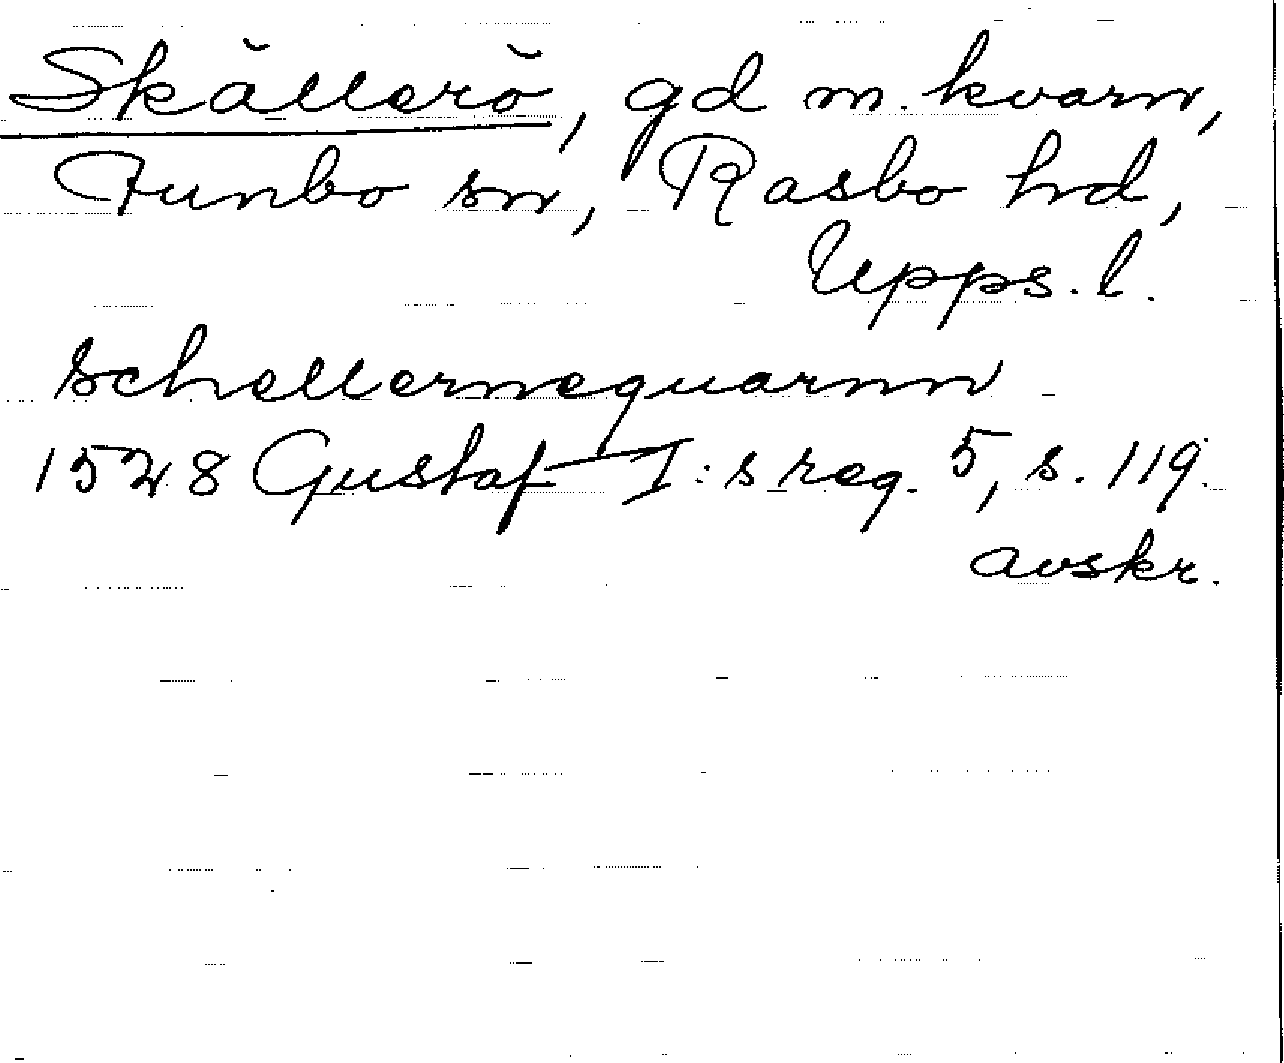 Skällerö, gd m. kvarn,
Funbo sn, Rasbo hd,
Upps. l.
schellernequarnn
1528 Gustaf I:s reg. 5, s. 119.
avskr.